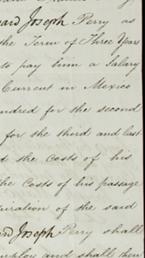 ard Joseph Perry as
the Term of Three Years
to pay him a Salary
Current in Mexico
ndred for the second
for the third and last
the Costs of his
the Costs of his passage
uration of the said
Joseph Perry shall
and shall then